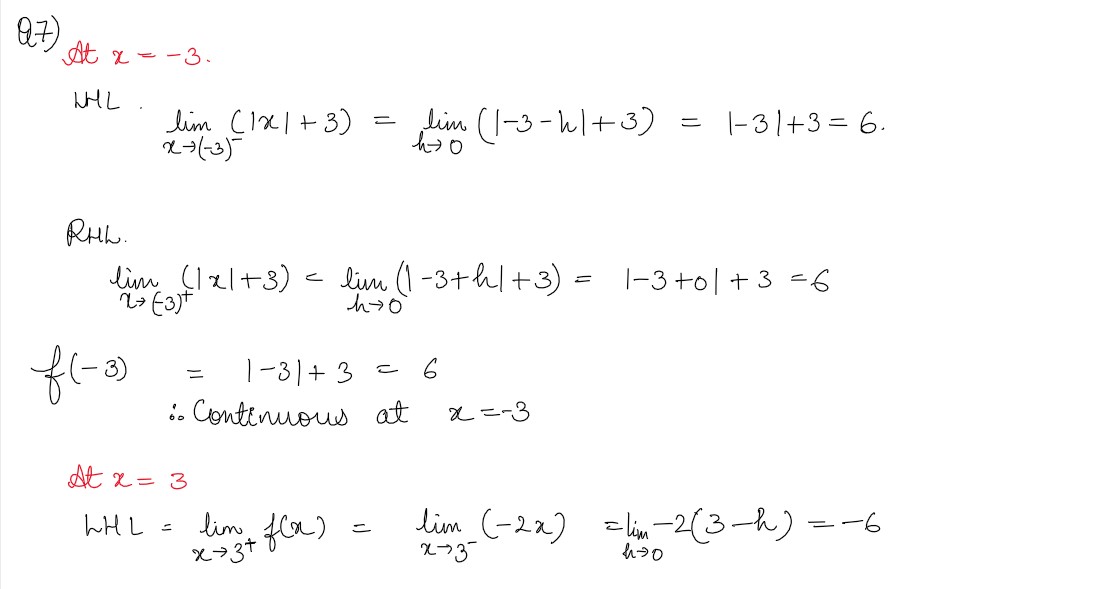 Q7)
At x = -3.
LHL .
lim x→(-3)⁻ (|x| + 3) = lim h→0 (|-3 - h| + 3) = |-3| + 3 = 6.
RHL.
lim x→(-3)⁺ (|x| + 3) = lim h→0 (|-3 + h| + 3) = |-3 + 0| + 3 = 6
f(-3) = |-3| + 3 = 6
∴ Continuous at x = -3
At x = 3
LHL = lim x→3⁺ f(x) = lim x→3⁻ (-2x) = lim h→0 -2(3 - h) = -6